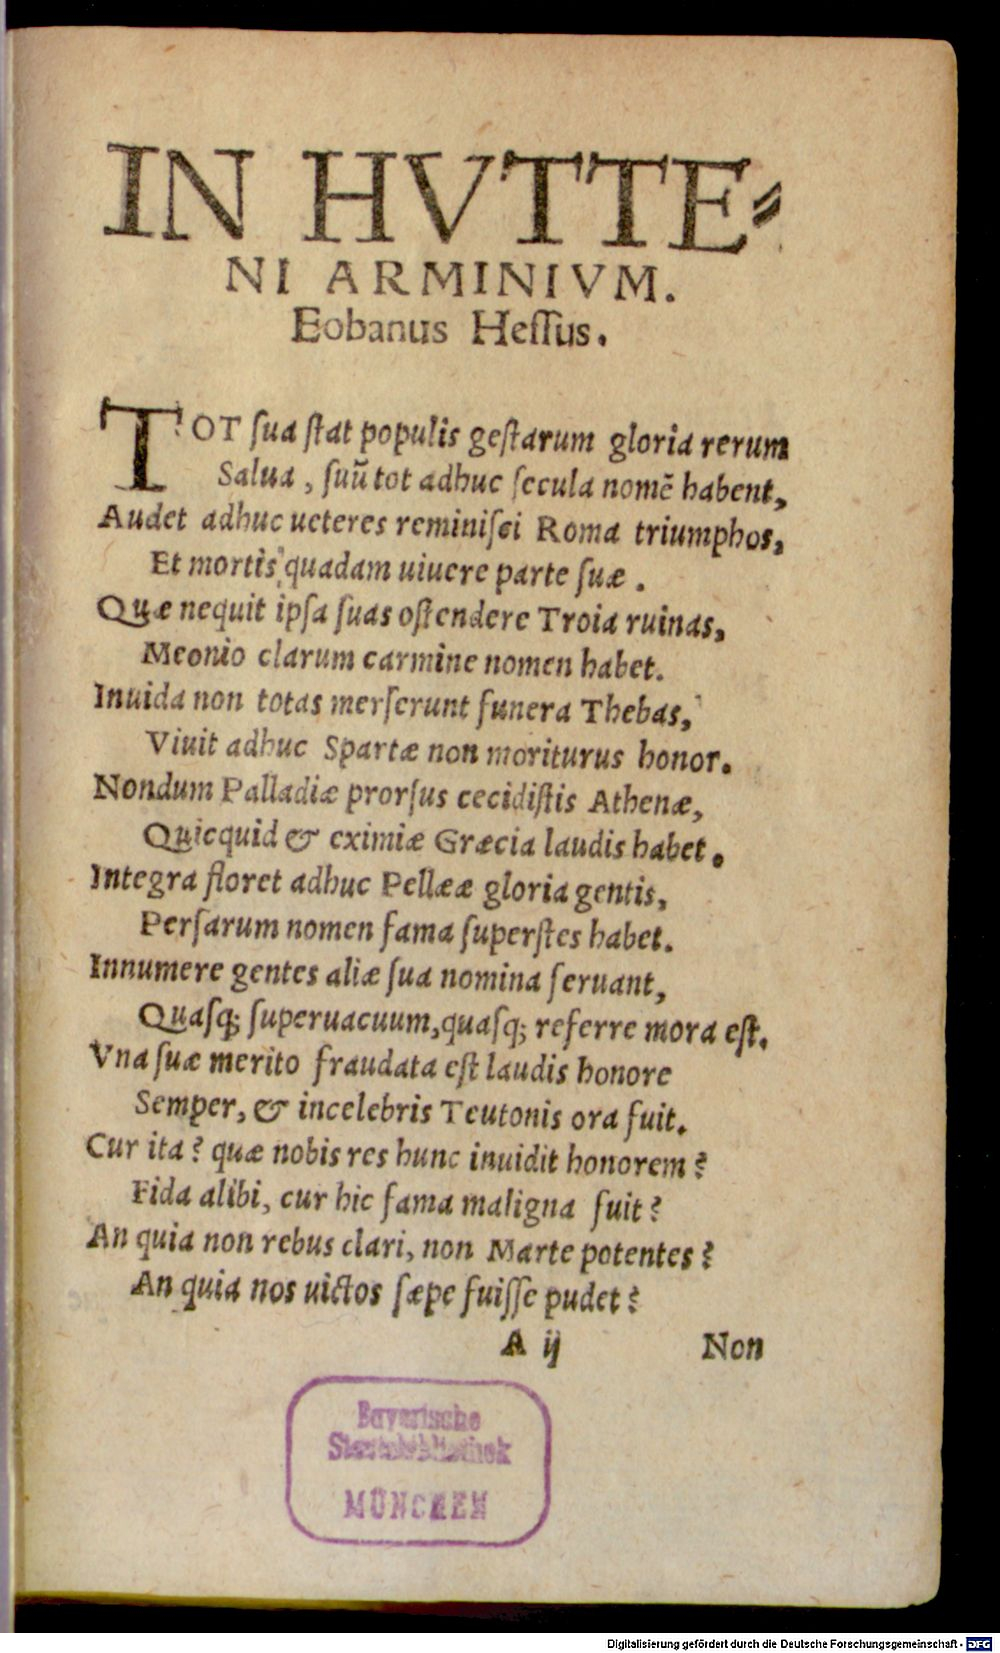 IN HVTTE-
NI ARMINIVM.
Eobanus Heſſus.
TOT ſua ſtat populis geſtarum gloria rerum
Salua, ſuū tot adhuc ſecula nomē habent,
Audet adhuc ueteres reminiſci Roma triumphos,
Et mortis quadam uiuere parte ſuæ.
Quæ nequit ipſa ſuas oſtendere Troia ruinas,
Meonio clarum carmine nomen habet.
Inuida non totas merſerunt funera Thebas,
Viuit adhuc Spartæ non moriturus honor.
Nondum Palladiæ prorſus cecidiſtis Athenæ,
Quicquid & eximiæ Græcia laudis habet.
Integra floret adhuc Pellææ gloria gentis,
Perſarum nomen fama ſuperſtes habet.
Innumere gentes aliæ ſua nomina ſeruant,
Quaſq; ſuperuacuum, quaſq; referre mora eſt.
Vna ſuæ merito fraudata eſt laudis honore
Semper, & incelebris Teutonis ora fuit.
Cur ita? quæ nobis res hunc inuidit honorem?
Fida alibi, cur hic fama maligna fuit?
An quia non rebus clari, non Marte potentes?
An quia nos uictos ſæpe fuiſſe pudet?
A ij Non
Bayerische
Staatsbibliothek
MÜNCHEN
Digitalisierung gefördert durch die Deutsche Forschungsgemeinschaft - DFG